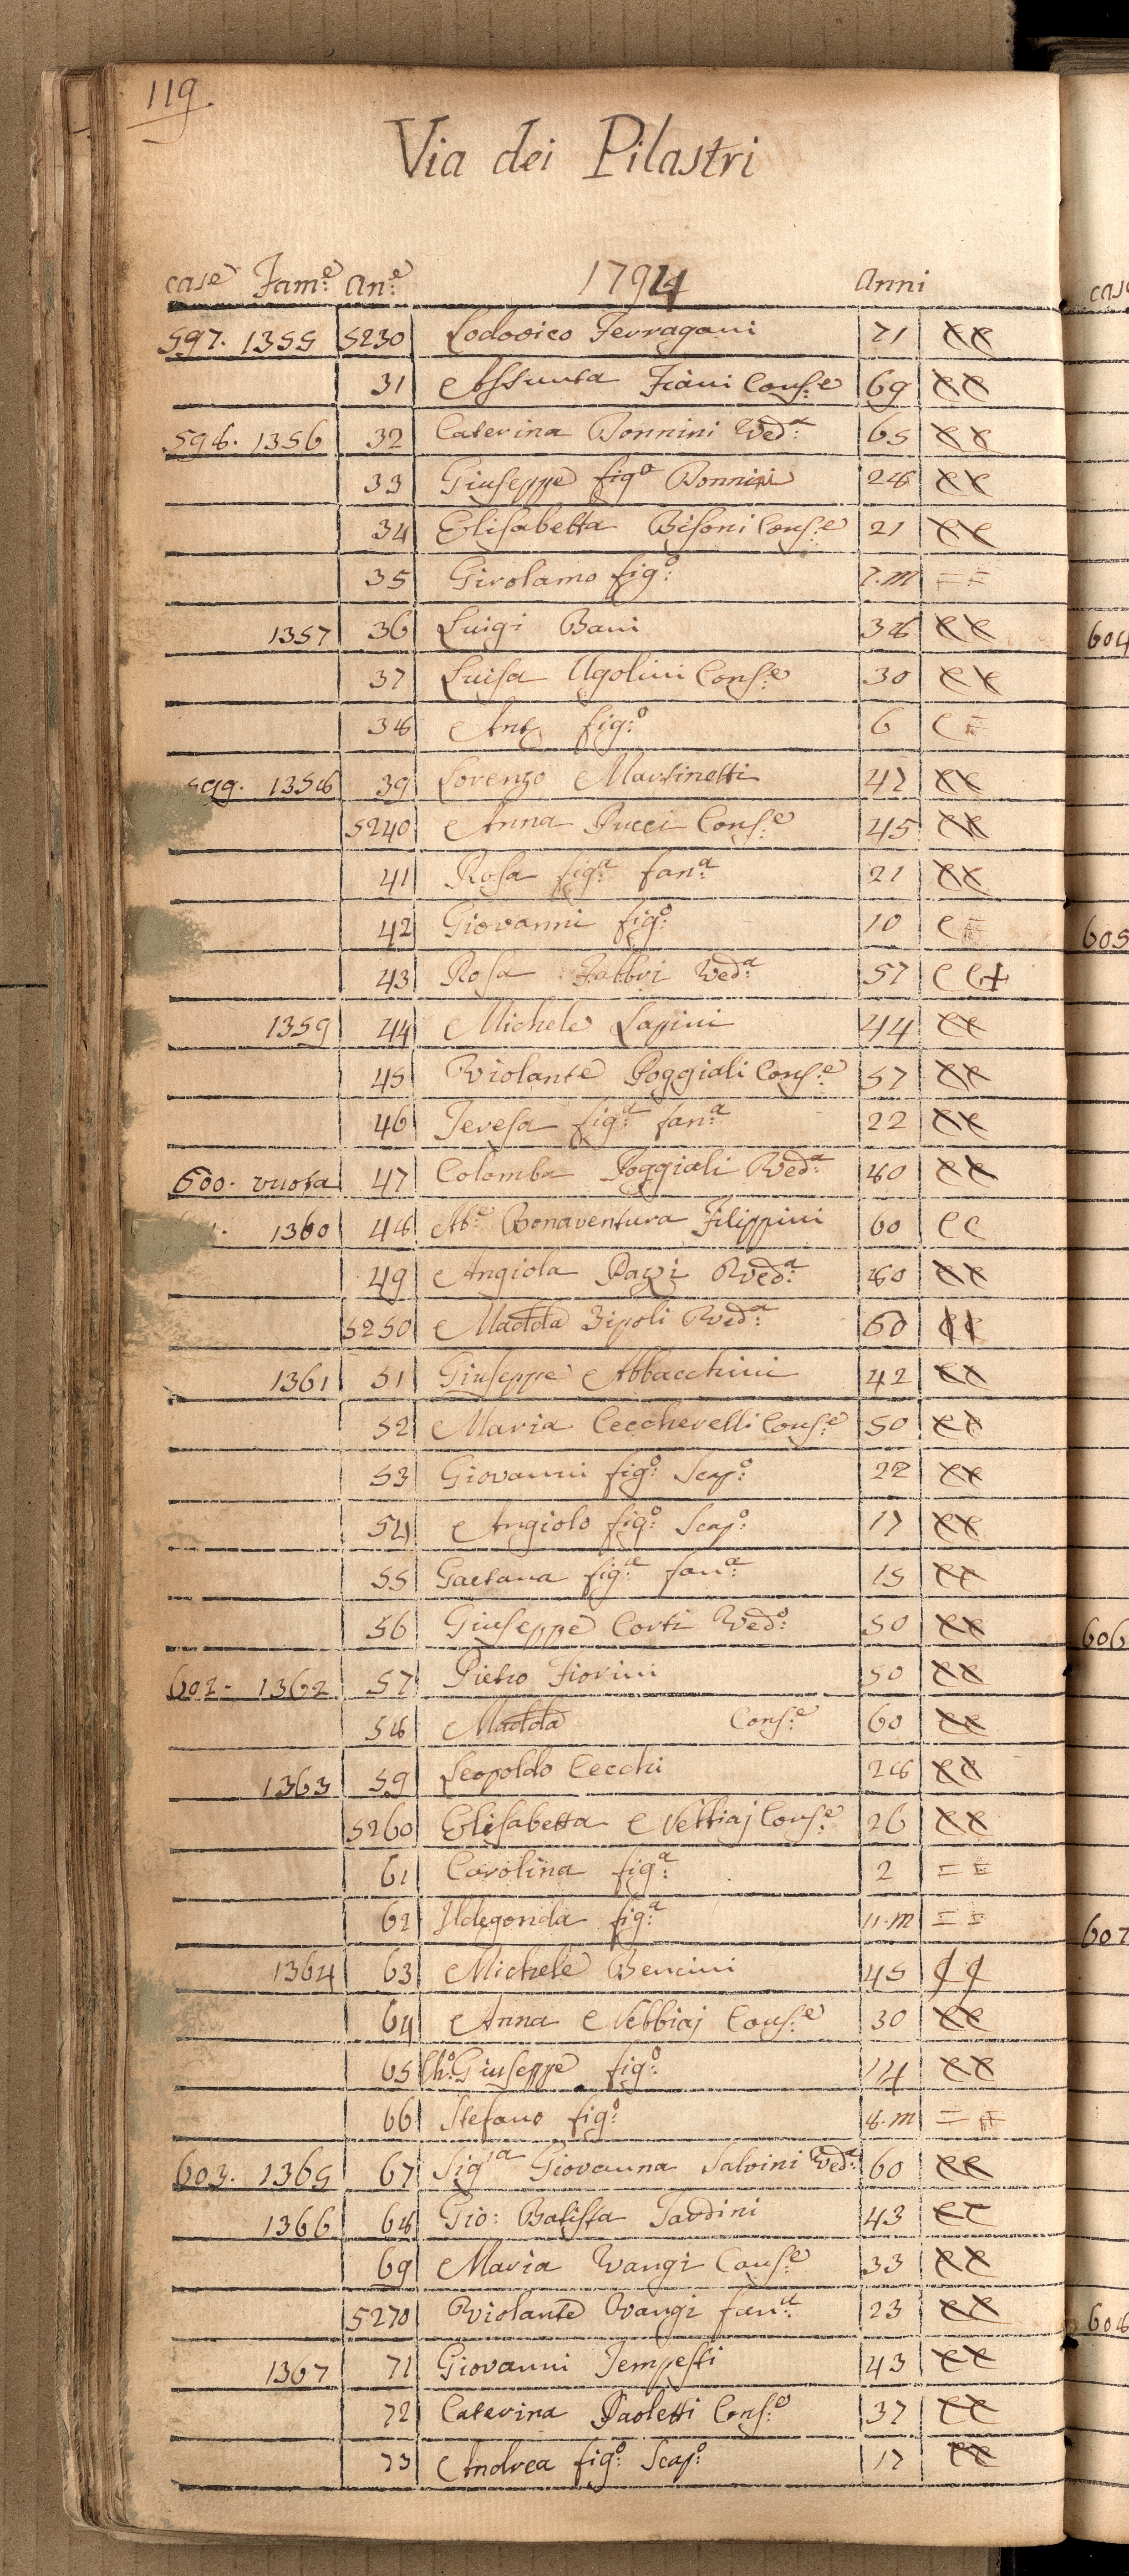 119
Via dei Pilastri
case Fam:e an:e 1794 Anni
597. 1355 5230 Lodovico Ferragani 71
31 Assunta Fiani Cons:e 69
598. 1356 32 Caterina Bonnini Ved:a 65
33 Giuseppe fig:o Bonnini 28
34 Elisabetta Bisoni Cons:e 21
35 Girolamo fig:o 7.m = =
1357 36 Luigi Bani 38
37 Luisa Ugolini Cons:e 30
38 Ant:o fig:o 6 C =
599. 1358 39 Lorenzo Martinetti 47
5240 Anna Pucci Cons:e 45
41 Rosa fig:a fan:a 21
42 Giovanni fig:o 10 C =
43 Rosa Fabbri Ved:a 57 C C +
1359 44 Michele Lapini 44
45 Violante Poggiali Cons:e 57
46 Teresa fig:a fan:a 22
600. vuota 47 Colomba Poggiali Ved:a 80
1360 48 Ab:e Bonaventura Filippini 60 C C
49 Angiola Pazzi Ved:a 80
5250 Madd:a Zipoli Ved:a 60
1361 51 Giuseppe Abbacchini 42
52 Maria Ceccherelli Cons:e 50
53 Giovanni fig:o Scap:o 22
54 Angiolo fig:o Scap:o 17
55 Gaetana fig:a fan:a 15
56 Giuseppe Corti Ved:o 50
602. 1362 57 Pietro Fiorini 50
58 Madd:a Cons:e 60
1363 59 Leopoldo Cecchi 28
5260 Elisabetta Nebbiaj Cons:e 26
61 Carolina fig:a 2 = =
62 Ildegonda fig:a 11.m = =
1364 63 Michele Bencini 45
64 Anna Nebbiaj Cons:e 30
65 Ch:o Giuseppe fig:o 14
66 Stefano fig:o 8.m = =
603. 1365 67 Sig:ra Giovanna Salvini Ved:a 60
1366 68 Gio: Batista Tardini 43
69 Maria Vangi Cons:e 33
5270 Violante Vangi fan:a 23
1367 71 Giovanni Tempesti 43
72 Caterina Paoletti Cons:e 37
73 Andrea fig:o Scap:o 17
604
605
606
607
608